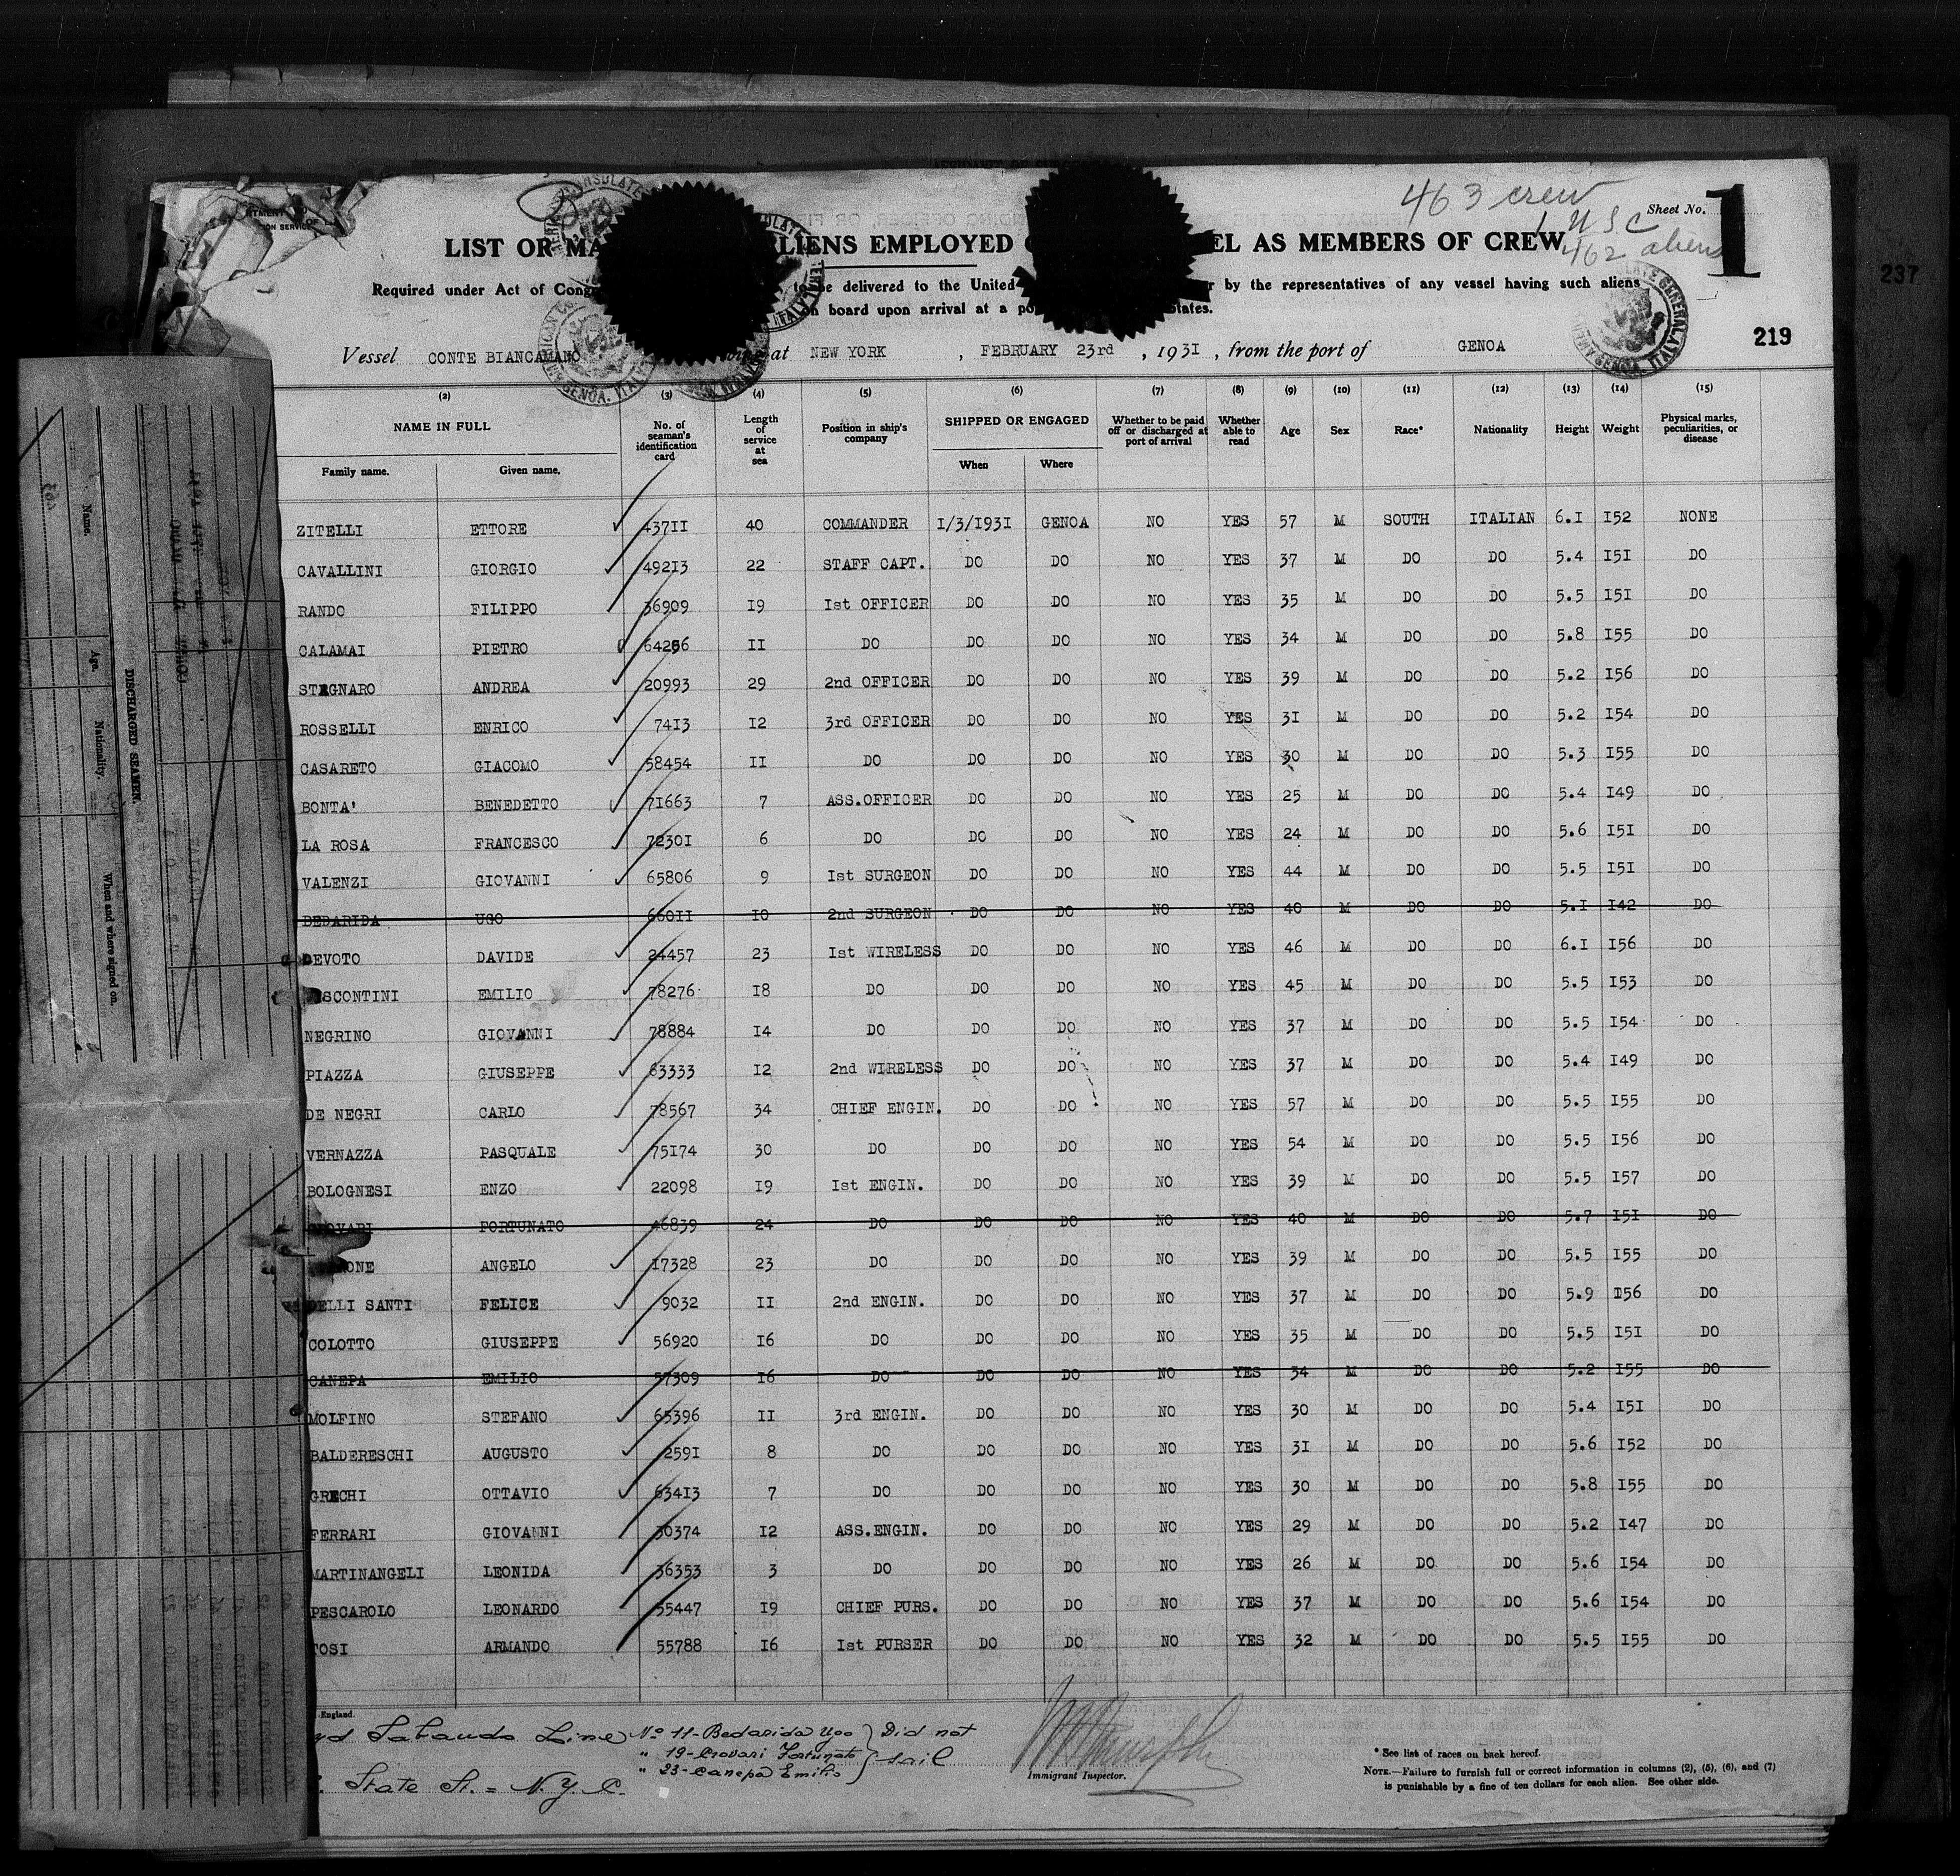 463 crew
1 USC
462 aliens
Sheet No. 1
LIENS EMPLOYED
EL AS MEMBERS OF CREW
Required under Act of
to be delivered to the United
by the representatives of any vessel having such aliens
on board upon arrival at a
219
237
Vessel CONTE BIANCAMANO at NEW YORK , FEBRUARY 23rd , 1931 , from the port of GENOA
(2) (3) (4) (5) (6) (7) (8) (9) (10) (11) (12) (13) (14) (15)
NAME IN FULL
Family name. Given name.
No. of seaman's identification card
Length of service at sea
Position in ship's company
SHIPPED OR ENGAGED
When Where
Whether to be paid off or discharged at port of arrival
Whether able to read
Age Sex Race* Nationality Height Weight
Physical marks, peculiarities, or disease
ZITELLI ETTORE 43711 40 COMMANDER 1/3/1931 GENOA NO YES 57 M SOUTH ITALIAN 6.1 152 NONE
CAVALLINI GIORGIO 49213 22 STAFF CAPT. DO DO NO YES 37 M DO DO 5.4 151 DO
RANDO FILIPPO 36909 19 1st OFFICER DO DO NO YES 35 M DO DO 5.5 151 DO
CALAMAI PIETRO DO DO DO NO YES 34 M DO DO 5.8 155 DO
STAGNARO ANDREA 20993 29 2nd OFFICER DO DO NO YES 39 M DO DO 5.2 156 DO
ROSSELLI ENRICO 7413 12 3rd OFFICER DO DO NO YES 31 M DO DO 5.2 154 DO
CASARETO GIACOMO 58454 11 DO DO DO NO YES 30 M DO DO 5.3 155 DO
BONTA' BENEDETTO 71663 7 ASS.OFFICER DO DO NO YES 25 M DO DO 5.4 149 DO
LA ROSA FRANCESCO 72301 6 DO DO DO NO YES 24 M DO DO 5.6 151 DO
VALENZI GIOVANNI 65806 9 1st SURGEON DO DO NO YES 44 M DO DO 5.5 151 DO
BEDARIDA UGO 66011 10 2nd SURGEON DO DO NO YES 40 M DO DO 5.1 142 DO
DEVOTO DAVIDE 24457 23 1st WIRELESS DO DO NO YES 46 M DO DO 6.1 156 DO
SCONTINI EMILIO 78276 18 DO DO DO NO YES 45 M DO DO 5.5 153 DO
NEGRINO GIOVANNI 78884 14 DO DO DO NO YES 37 M DO DO 5.5 154 DO
PIAZZA GIUSEPPE 63333 12 2nd WIRELESS DO DO NO YES 37 M DO DO 5.4 149 DO
DE NEGRI CARLO 78567 34 CHIEF ENGIN. DO DO NO YES 57 M DO DO 5.5 155 DO
VERNAZZA PASQUALE 75174 30 DO DO DO NO YES 54 M DO DO 5.5 156 DO
BOLOGNESI ENZO 22098 19 1st ENGIN. DO DO NO YES 39 M DO DO 5.5 157 DO
CROVARI FORTUNATO 46839 24 DO DO DO NO YES 40 M DO DO 5.7 151 DO
ONE ANGELO 17328 23 DO DO DO NO YES 39 M DO DO 5.5 155 DO
DELLI SANTI FELICE 9032 11 2nd ENGIN. DO DO NO YES 37 M DO DO 5.9 156 DO
COLOTTO GIUSEPPE 56920 16 DO DO DO NO YES 35 M DO DO 5.5 151 DO
CANEPA EMILIO 57309 16 DO DO DO NO YES 34 M DO DO 5.2 155 DO
MOLFINO STEFANO 65396 11 3rd ENGIN. DO DO NO YES 30 M DO DO 5.4 151 DO
BALDERESCHI AUGUSTO 2591 8 DO DO DO NO YES 31 M DO DO 5.6 152 DO
GRECHI OTTAVIO 63413 7 DO DO DO NO YES 30 M DO DO 5.8 155 DO
FERRARI GIOVANNI 30374 12 ASS.ENGIN. DO DO NO YES 29 M DO DO 5.2 147 DO
MARTINANGELI LEONIDA 36353 3 DO DO DO NO YES 26 M DO DO 5.6 154 DO
PESCAROLO LEONARDO 55447 19 CHIEF PURS. DO DO NO YES 37 M DO DO 5.6 154 DO
TOSI ARMANDO 55788 16 1st PURSER DO DO NO YES 32 M DO DO 5.5 155 DO
England.
Sabaudo Line
State St. = N.Y.C.
No 11-Bedarida Ugo
" 19-Crovari Fortunato
" 23-Canepa Emilio
Did not sail
Immigrant Inspector.
* See list of races on back hereof.
NOTE.—Failure to furnish full or correct information in columns (2), (5), (6), and (7)
is punishable by a fine of ten dollars for each alien. See other side.
DISCHARGED SEAMEN.
Name. Age. Nationality. When and where signed on.